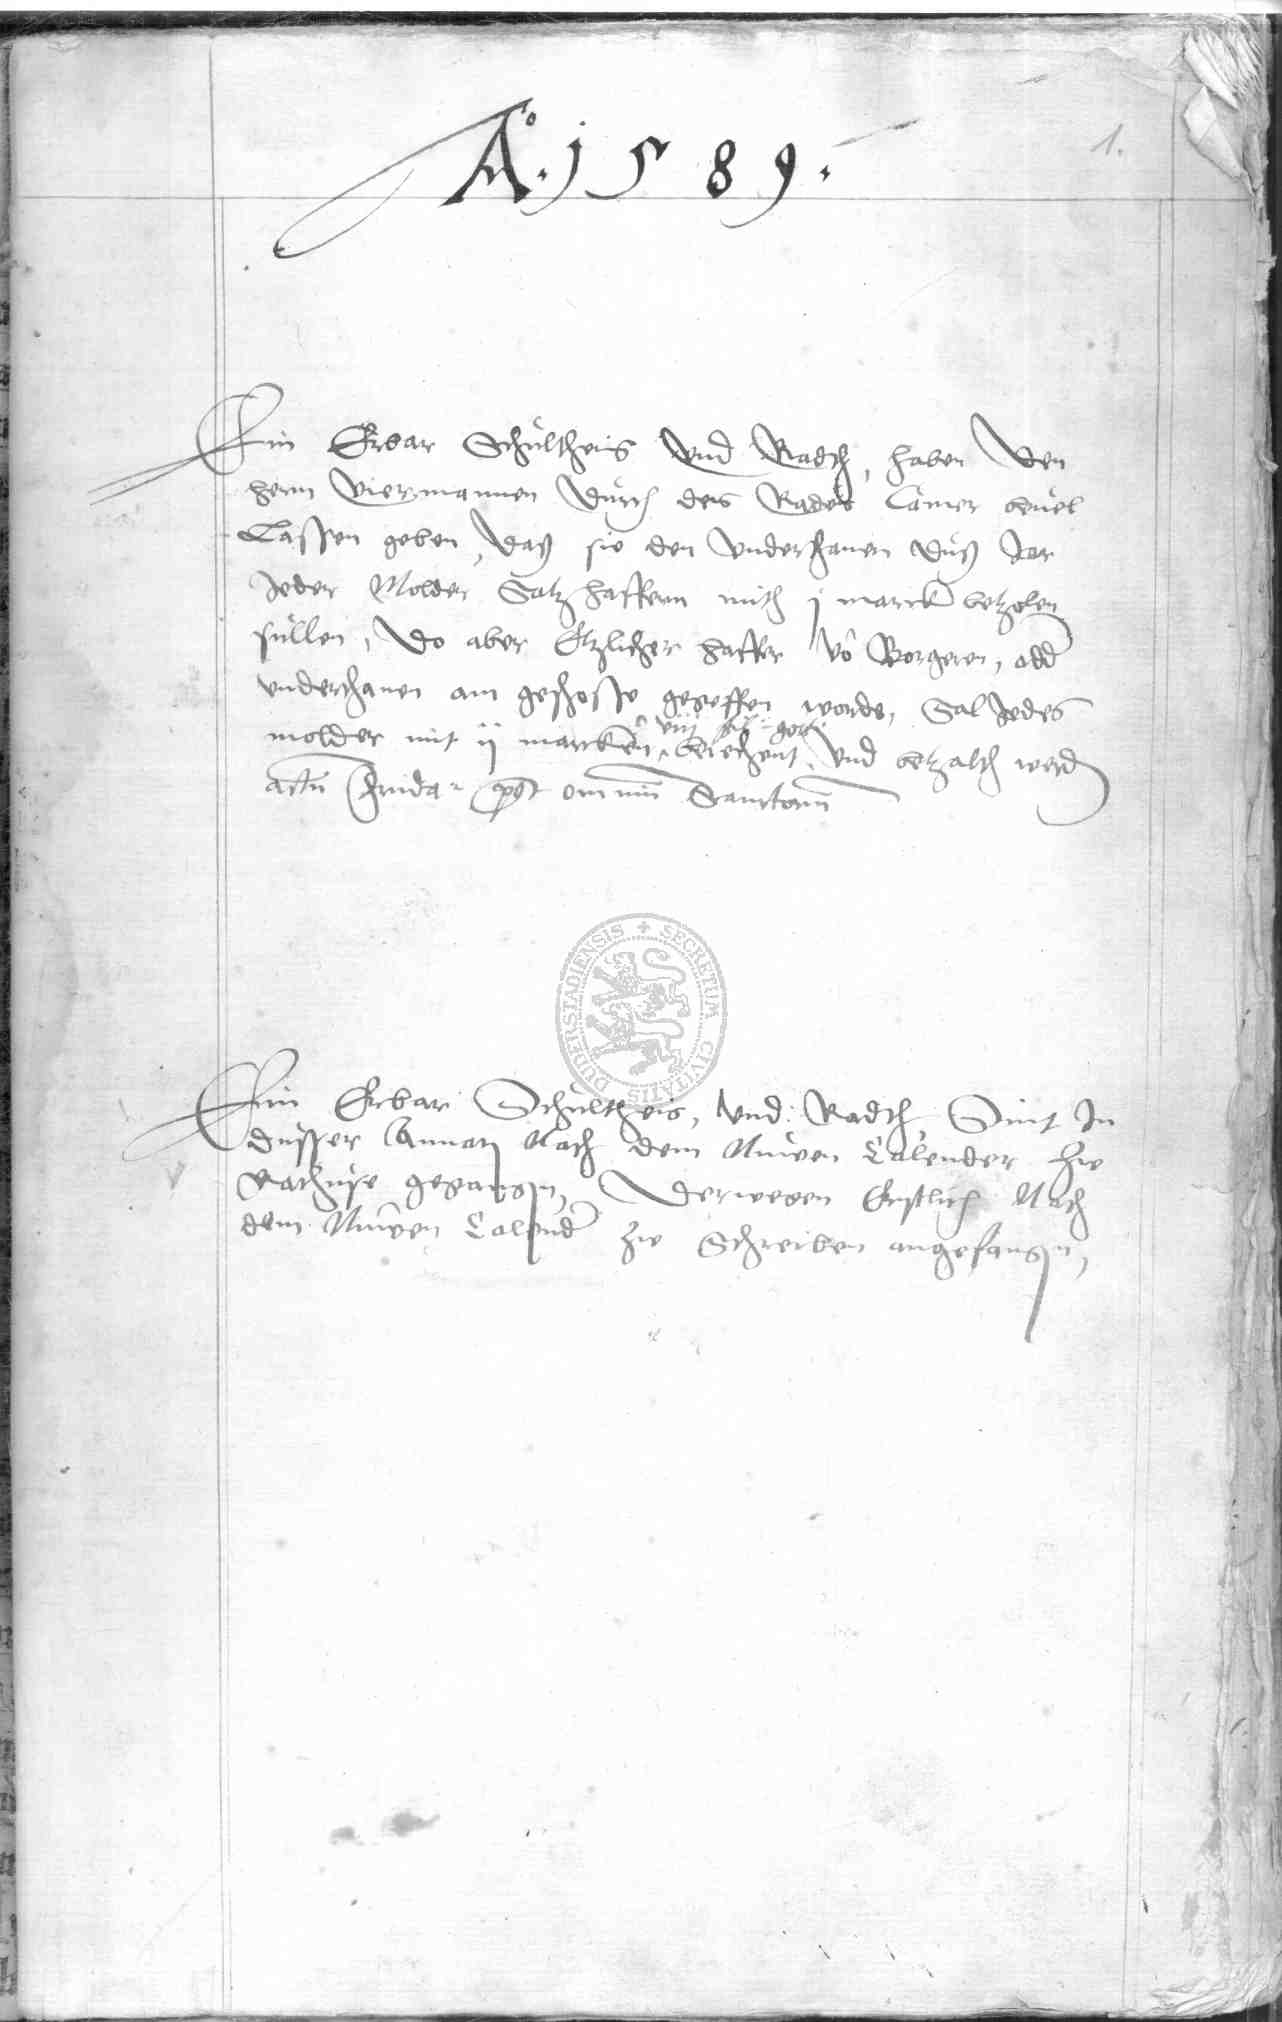 Ao. 1589.
1.
Ein Erbar Schultheis Vnd Radth, haben Den
herrn Viermannen Durch des Rades Camer bevel
Lassen geben, Daß sie den Vnderthanen Duß Jar
Jeder Molder Saltzhaffern mith j marck betzolen
sullen, Do aber Etzlicher haffer vo Borgeren, odd
vnderthanen am geschosse gegeffen worde, Sal Jedes
molder mit ij marcken berechent, Vnd betzalth werd
actu post omniu Sanctoru
SECRETUM CIVITATIS DUDERSTADIENSIS
Ein Erbar Schultheis, Vnd Radth Sint In
dusser Nach dem Nuwen Calender Zw
Rathuse gegangn, Derwegen Erstlich Nach
dem Nuwen Calend Zw Schreiben angefangn,